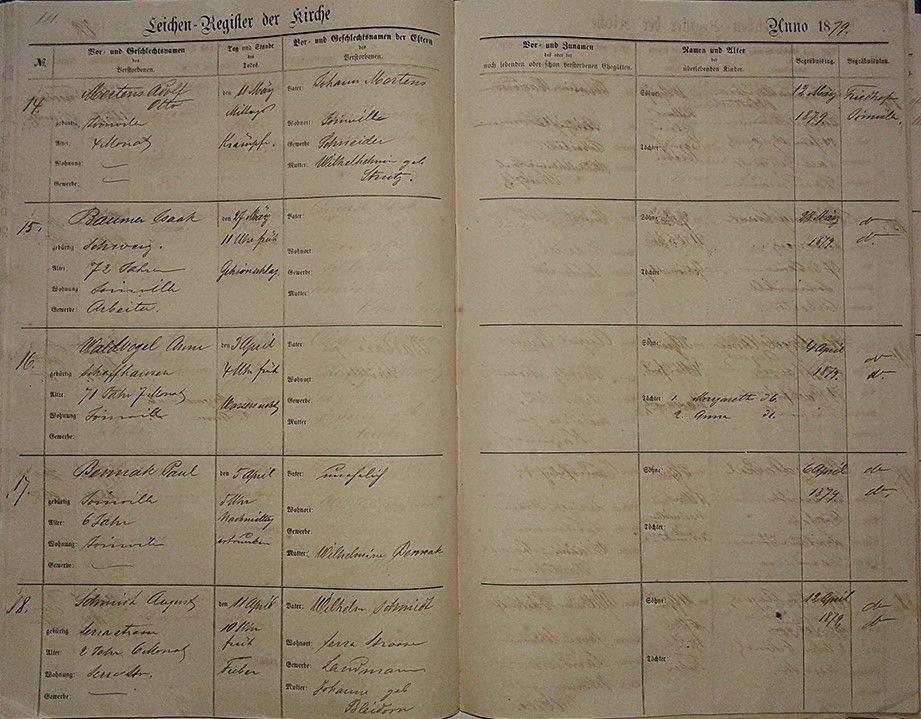 Leichen-Register der Kirche
Anno 1879.
№
Vor- und Geschlechtsnamen
des
Verstorbenen.
Tag und Stunde
des
Todes.
Vor- und Geschlechtsnamen der Eltern
des
Verstorbenen.
Vor- und Zunamen
des oder der
noch lebenden oder schon verstorbenen Ehegatten.
Namen und Alter
der
überlebenden Kinder.
Begräbnisstag.
Begräbnissplatz.
14.
Martens Adolf
Otto
gebürtig Joinville
Alter: 4 Monat
Wohnung:
Gewerbe:
den 11 März
Mittags
Krämpfe.
Vater: Johann Martens
Wohnort: Joinville
Gewerbe: Schneider
Mutter: Wilhelmine geb
Söhne:
Töchter:
12 März
1879.
Friedhof
Joinville.
15.
Baumer Isaak
gebürtig Schweiz.
Alter: 72 Jahre
Wohnung: Joinville
Gewerbe: Arbeiter.
den 27 März
11 Uhr früh
Gehirnschlag
Vater:
Wohnort
Gewerbe:
Mutter:
Söhne:
Töchter:
28 März
1879.
do
do.
16.
Waldvogel Anna
gebürtig Schaffhausen
Alter: 71 Jahr 7 Monat
Wohnung: Joinville
Gewerbe:
den 3 April
4 Uhr früh
Wassersucht
Vater:
Wohnort
Gewerbe:
Mutter:
Söhne:
Töchter 1. Margareth 36.
2. Anna 31.
4 April
1879.
do
do.
17.
Bennak Paul
gebürtig Joinville
Alter: 6 Jahr
Wohnung: Joinville
Gewerbe:
den 5 April
5 Uhr
Nachmittag
ertrunken
Vater: unehelich
Wohnort:
Gewerbe:
Mutter: Wilhelmine Bennak
Söhne:
Töchter:
6 April
1879.
do
do.
18.
Schmidt August
gebürtig Serrastrasse
Alter: 2 Jahr 6 Monat
Wohnung: Serrastr.
Gewerbe:
den 11 April
10 Uhr
früh
Fieber
Vater: Wilhelm Schmidt
Wohnort: Serra Strasse
Gewerbe: Landmann
Mutter: Johanne geb
Bleidorn
Söhne:
Töchter
12 April
1879.
do
do